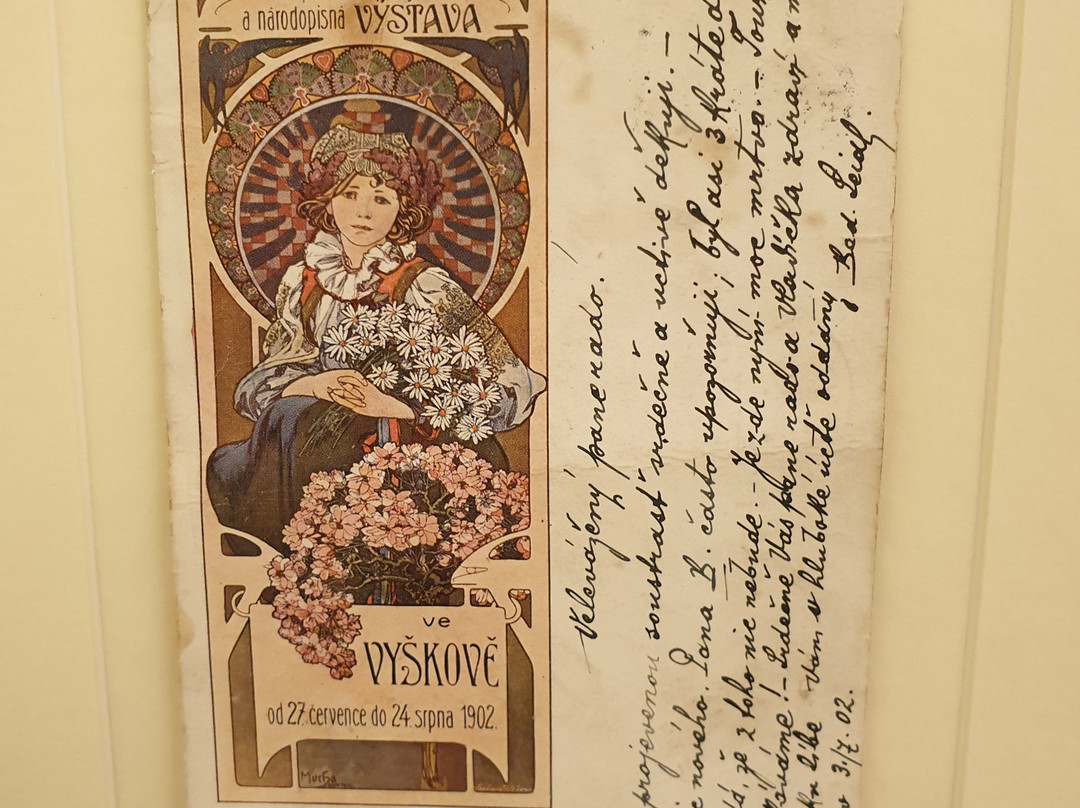 a národopisná VÝSTAVA
ve
VYŠKOVĚ
od 27. července do 24. srpna 1902.
Mucha
Velevážený pane rado.
projevenou soustrast srdečně a uctivě děkuji. —
nového. Pana B. často upozorňuji; byl asi 3 kráte
že z toho nic nebude. – Je zde nyní moc mrtvo. –
Srdečně Vás pane rado a Vladíčka zdraví a
Vám v hluboké úctě oddaný Bed. Seidl.
3/7. 02.